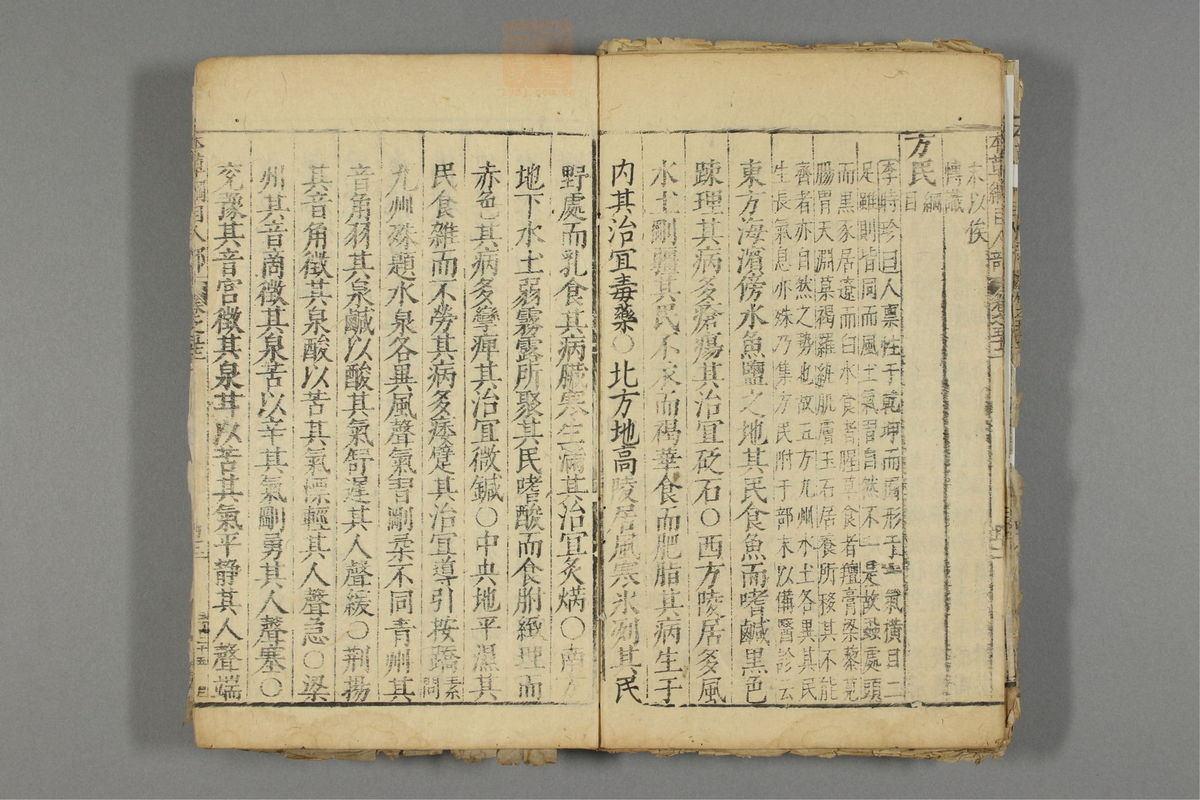 本草綱目人部
末以俟
博識
方民綱目
李時珍曰人稟性于乾坤而囿形于一氣橫目二
足雖則皆同而風土氣習自然不一是故蝨處頭
而黑豕居遼而白水食者腥草食者羶膏粱藜莧
腸胃天淵菉褐羅紈肌膚玉石居養所移其不能
齊者亦自然之勢也故五方九州水土各異其民
生長氣息亦殊乃集方民附于部末以備醫診云
東方海濱傍水魚鹽之地其民食魚而嗜鹹黑色
踈理其病多瘡瘍其治宜砭石〇西方陵居多風
水土剛彊其民不衣而褐華食而肥脂其病生于
内其治宜毒藥〇北方地高陵居風寒氷冽其民
野處而乳食其病臓寒生滿其治宜灸焫〇南方
地下水土弱霧露所聚其民嗜酸而食胕緻理而
赤色其病多攣痺其治宜微鍼〇中央地平濕其
民食雜而不勞其病多痿躄其治宜導引按蹻素問
九州殊題水泉各異風聲氣習剛柔不同青州其
音角羽其泉鹹以酸其氣舒遲其人聲緩〇荆揚
其音角徵其泉酸以苦其氣慓輕其人聲急〇梁
州其音商徵其泉苦以辛其氣剛勇其人聲塞〇
兖豫其音宮徵其泉苷以苦其氣平靜其人聲端
本草綱目人部 卷之五十二